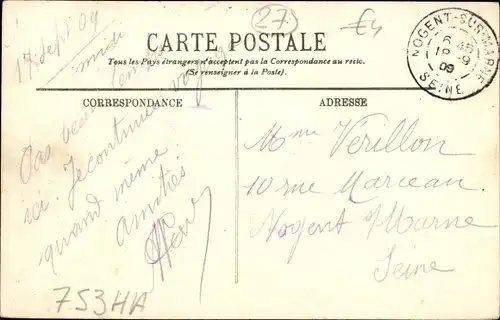 17 sept 09
27
£4
CARTE POSTALE
Tous les Pays étrangers n'acceptent pas la Correspondance au recto.
(Se renseigner à la Poste).
NOGENT-SUR-MARNE
6 45
18 -9
09
SEINE
CORRESPONDANCE
ADRESSE
Pas beau temps
ici. Je continue voyage
quand même
Amitiés
Mme Verillon
10 rue Marceau
Nogent s/Marne
Seine
753HA